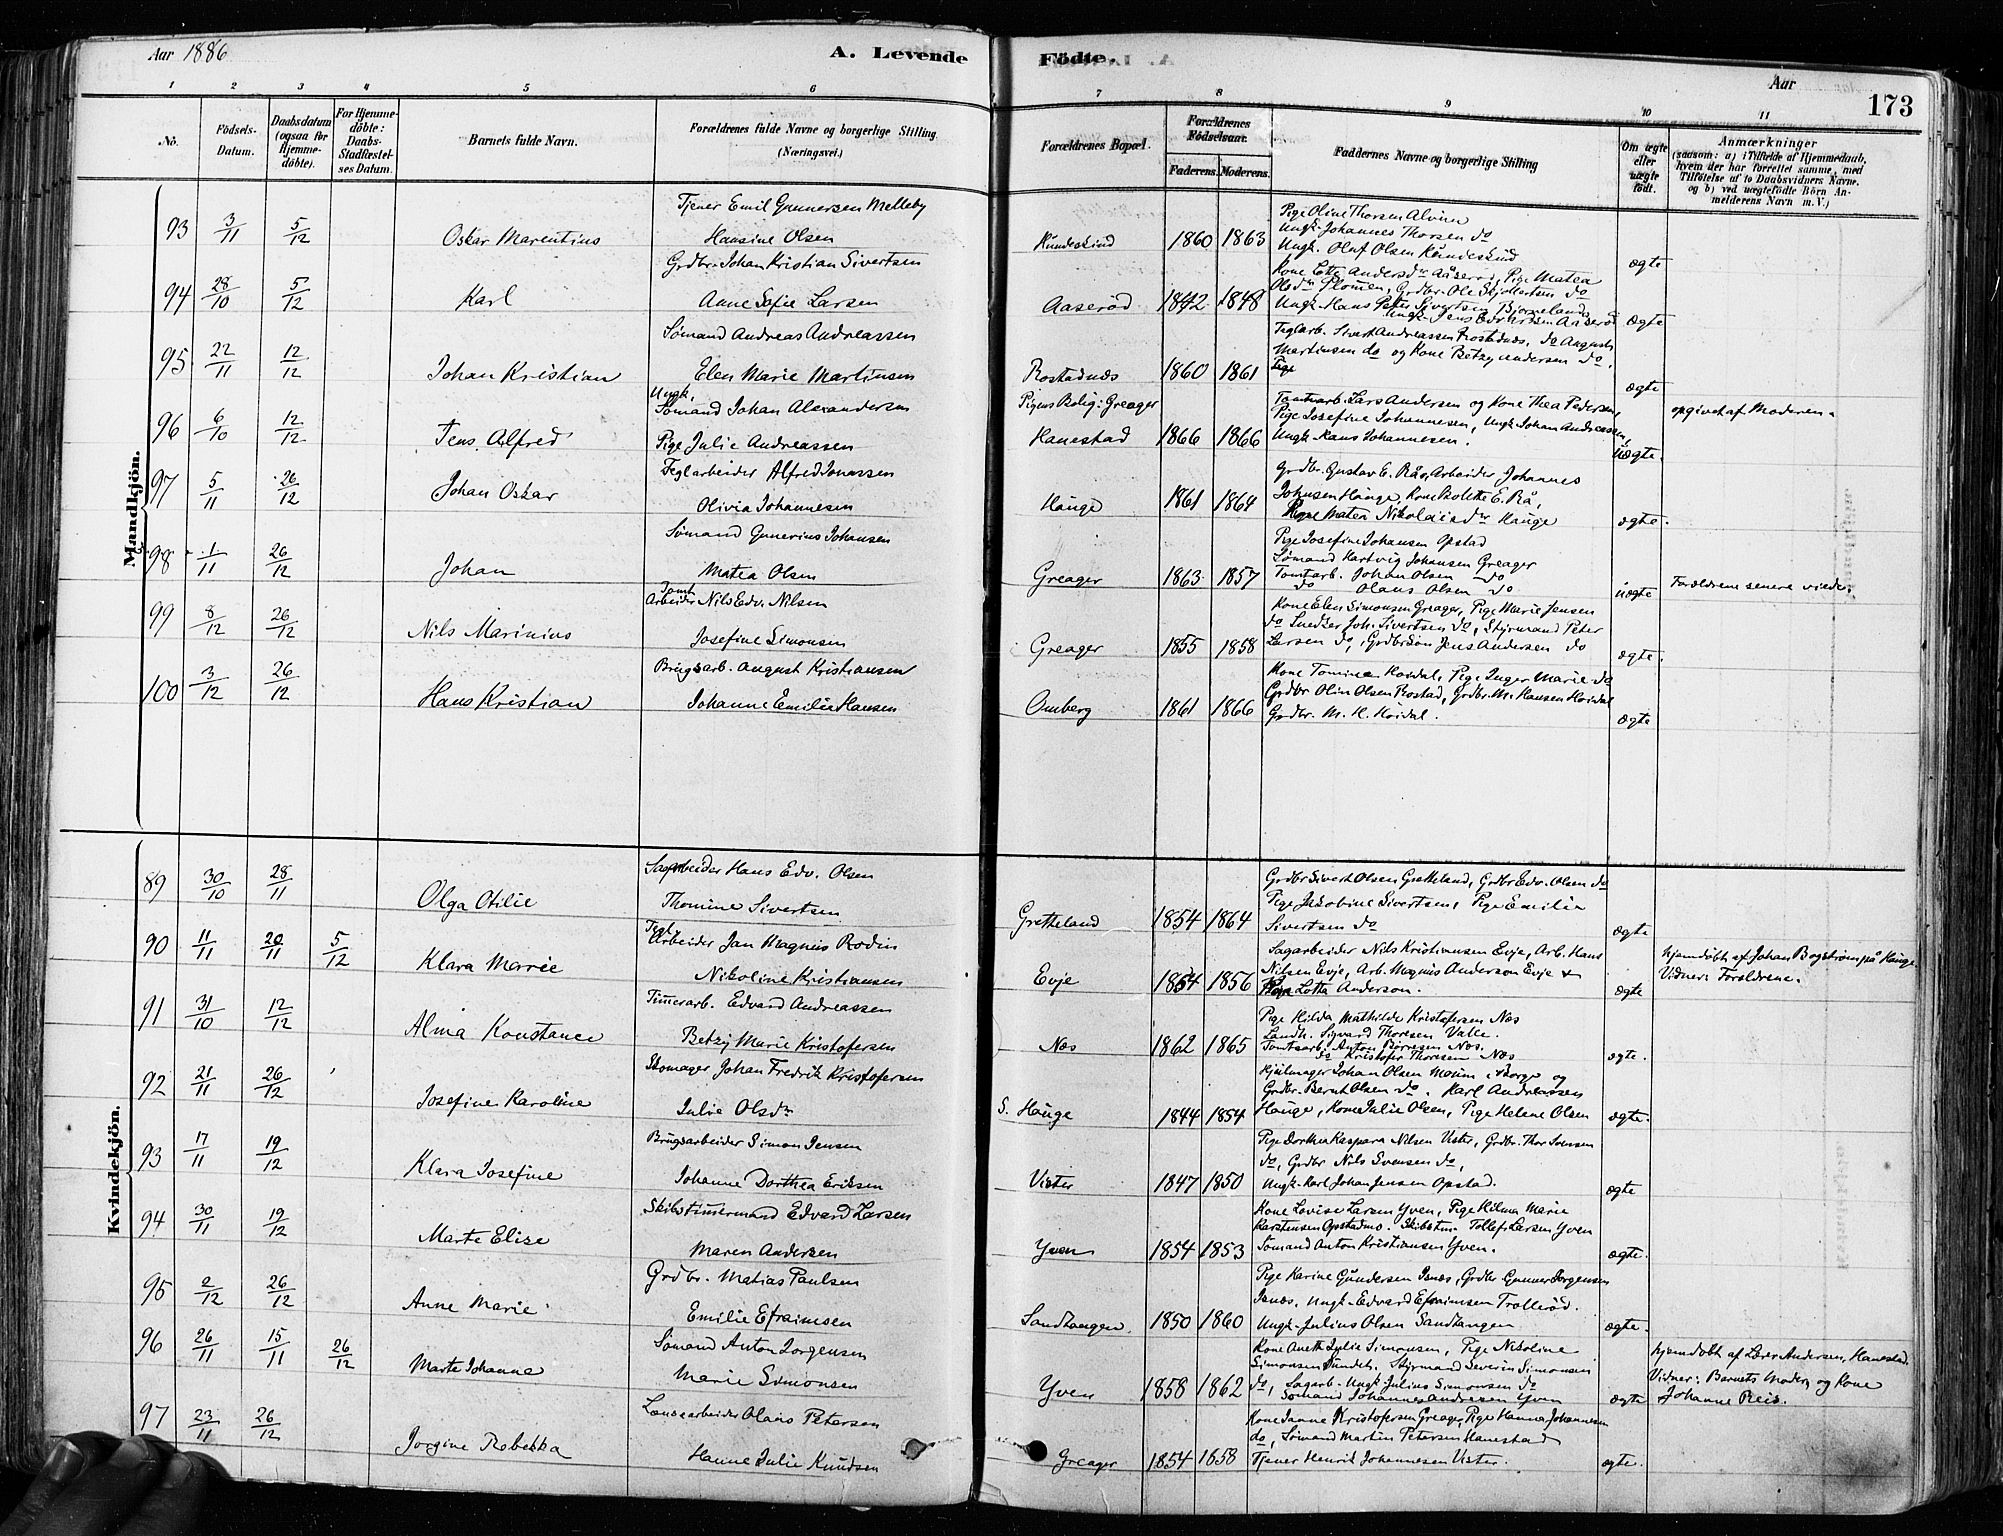 Aar 1886
A. Levende
Födte.
Aar
173
1 2 3 4 5 6 7 8 9 10 11
No.
Födsels-Datum.
Daabsdatum (ogsaa for Hjemmedöbte).
For Hjemmedöbte: Daabs-Stadfæstelses Datum.
Barnets fulde Navn.
Forældrenes fulde Navne og borgerlige Stilling. (Næringsvei.)
Forældrenes Bopæl.
Forældrenes Födselsaar.
Faderens. Moderens.
Faddernes Navne og borgerlige Stilling
Om ægte eller uægte født.
Anmærkninger
(saasom: a) i Tilfælde af Hjemmedaab, hvem der har forrettet samme, med Tilföielse af to Daabsvidners Navne, og b) ved uægtefödte Börn Anmelderens Navn m. V.)
Mandkjön.
93 3/11 5/12 Oskar Marentius
Tjener Emil Gunnersen Melleby
Hansine Olsen
Kundeskind 1860 1863
Pige Oline Thorsen Alvim
Ungk. Johannes Thorsen do
Ungk. Oluf Olsen Kundeskind
ægte
94 28/10 5/12 Karl
Grdbr. Johan Kristian Sivertsen
Anne Sofie Larsen
Aaserød 1842 1848
Kone Lotte Andersdr Aåserød, Pige Matea
Olsdr Plomen, Grdbr. Ole do
Ungk. Hans Peter Sivertsen Bjørneland
Ungk. Jens Aaserød
ægte
95 22/11 12/12 Johan Kristian
Sømand Andreas Andreassen
Elen Marie Martinsen
Rostadnæs 1860 1861
Teglarb. Sivert Andreassen Rostadnæs, do August
Martinsen do og Kone Betzy Andersen do.
Pige
ægte
96 6/10 12/12 Jens Alfred
Ungk. Sømand Johan Alexandersen
Pige Julie Andreassen
Pigens Bolig: Greager
Hanestad 1866 1866
Tomtarb. Lars Andersen og Kone Thea Pedersen,
Pige Josefine Johannesen, Ungk. Johan Andreassen,
Ungk. Hans Johannesen.
uægte.
opgivet af Moderen.
97 5/11 26/12 Johan Oskar
Teglarbeider Alfred Jonassen
Olivia Johannesen
Hauge 1861 1864
Grdbr. Gustav E. Rå, Arbeider Johannes
Johnsen Hauge, Kone Bolette E. Rå,
Pige Matea Nikolaisdr Hauge
ægte.
98 1/11 26/12 Johan
Sømand Gunerius Johansen
Matea Olsen
Greager 1863 1857
Pige Josefine Johansen Opstad
Sømand Hartvig Johansen Greager
Tomtarb. Johan Olsen do
do Olaus Olsen do
uægte
Forældrene senere viede.
99 8/12 26/12 Nils Marinius
Tomt Arbeider Nils Edv. Nilsen
Josefine Simonsen
Greager 1855 1858
Kone Elen Simonsen Greager, Pige Marie Jensen
do Snedker Joh. Sivertsen do, Styrmand Peter
Larsen do, Grdbrsøn Jens Andersen do
ægte.
100 3/12 26/12 Hans Kristian
Brugsarb. August Kristiansen
Johanne Emilie Hansen
Omberg 1861 1866
Kone Tomine Høidal, Pige Inger Marie do
Grdbr Olin Olsen Rostad, Grdbr. M. Hansen Høidal
Grdbr. M. H. Høidal.
ægte
Kvindekjön.
89 30/10 28/11 Olga Otilie
Sagarbeider Hans Edv. Olsen
Thomine Sivertsen
Gretteland 1854 1864
Grdbr Sivert Olsen Gretteland, Grdbr Edv. Olsen do
Pige Jakobine Sivertsen, Pige Emilie
Sivertsen do
ægte
90 11/11 20/11 5/12 Klara Marie
Tegl. Arbeider Jan Magnus Rodin
Nikoline Kristiansen
Evje 1854 1856
Sagarbeider Nils Kristiansen Evje, Arb. Hans
Nilsen Evje, Arb. Magnus Anderson Evje &
Lotta Anderson.
ægte
hjemdøbt af Johan Bogstrøm på Hauge.
Vidner: Forældrene.
91 31/10 12/12 Alma Konstance
Timerarb. Edvard Andreassen
Betzy Marie Kristofersen
Næs 1862 1865
Pige Hilda Mathilde Kristofersen Næs
Landh. Sigvard Thoresen Valle
Tomtearb. Anton Børresen Næs.
do Kristofer Thoresen Næs
ægte.
92 21/11 26/12 Josefine Karoline
Skomager Johan Fredrik Kristofersen
Julie Olsdr
S. Hauge 1844 1854
Hjulmager Johan Olsen Moum i Borge og
Grdbr. Bernt Olsen do. Karl Andreassen
Hauge, Kone Julie Olsen, Pige Helene Olsen
ægte.
93 17/11 19/12 Klara Josefine
Brugsarbeider Simon Jensen
Johanne Dorthea Eriksen
Vister 1847 1850
Pige Dorthea Kaspara Nilsen Vister, Grdbr. Thor Svensen
do, Grdbr Nils Svensen do,
Ungk. Karl Johan Jensen Opstad.
ægte
94 30/11 19/12 Marte Elise
Skibstimmermand Edvard Larsen
Maren Andersen
Yven 1854 1853
Kone Lovise Larsen Yven, Pige Hilma Marie
Karstensen Opstadmo. Skibstm. Tollef Larsen Yven
Sømand Anton Kristiansen Yven.
ægte.
95 2/12 26/12 Anne Marie
Grdbr. Matias Paulsen
Emilie Efraimsen
Sandtangen. 1850 1860
Pige Karine Gundersen Isnæs, Grdbr Gunner Jorgensen
Isnæs, Ungk. Edvard Efraimsen Trollerød.
Ungk. Julius Olsen Sandtangen
ægte.
96 26/11 15/11 26/12 Marte Johanne
Sømand Anton Jorgensen
Marie Simonsen
Yven 1858 1862
Kone Anette Julie Simonsen, Pige Nikoline
Simonsen Sundet, Styrmand Severin Simonsen
do, Sagarb. Ungk. Julius Simonsen do
Sømand Johannes Andresen Yven
ægte
hjemdøbt af Lærer Andersen, Hanestad.
Vidner: Barnets Moder og Kone
Johanne Reis.
97 23/11 26/12 Jorgine Rebekka
Landsarbeider Olaus Petersen
Hanne Julie Knudsen
Greager 1854 1858
Kone Janne Kristofersen Greager, Pige Hanna Johannesen
do, Sømand Martin Petersen Hanestad
Tjener Henrik Johannesen Vister.
ægte.